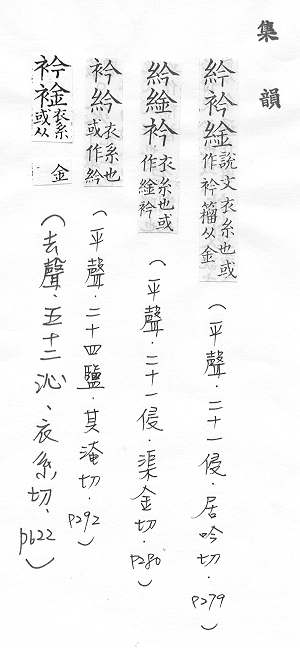 集韻
紟衿䋮說文衣糸也或作衿籀从金（平聲．二十一侵．居吟切．P279）
紟䋮衿衣糸也或作䋮衿（平聲．二十一侵．渠金切．P280）
衿紟衣系也或作紟（平聲．二十四鹽．其淹切．P292）
衿䘳衣系或从金（去聲．五十二沁．衣系切．P622）